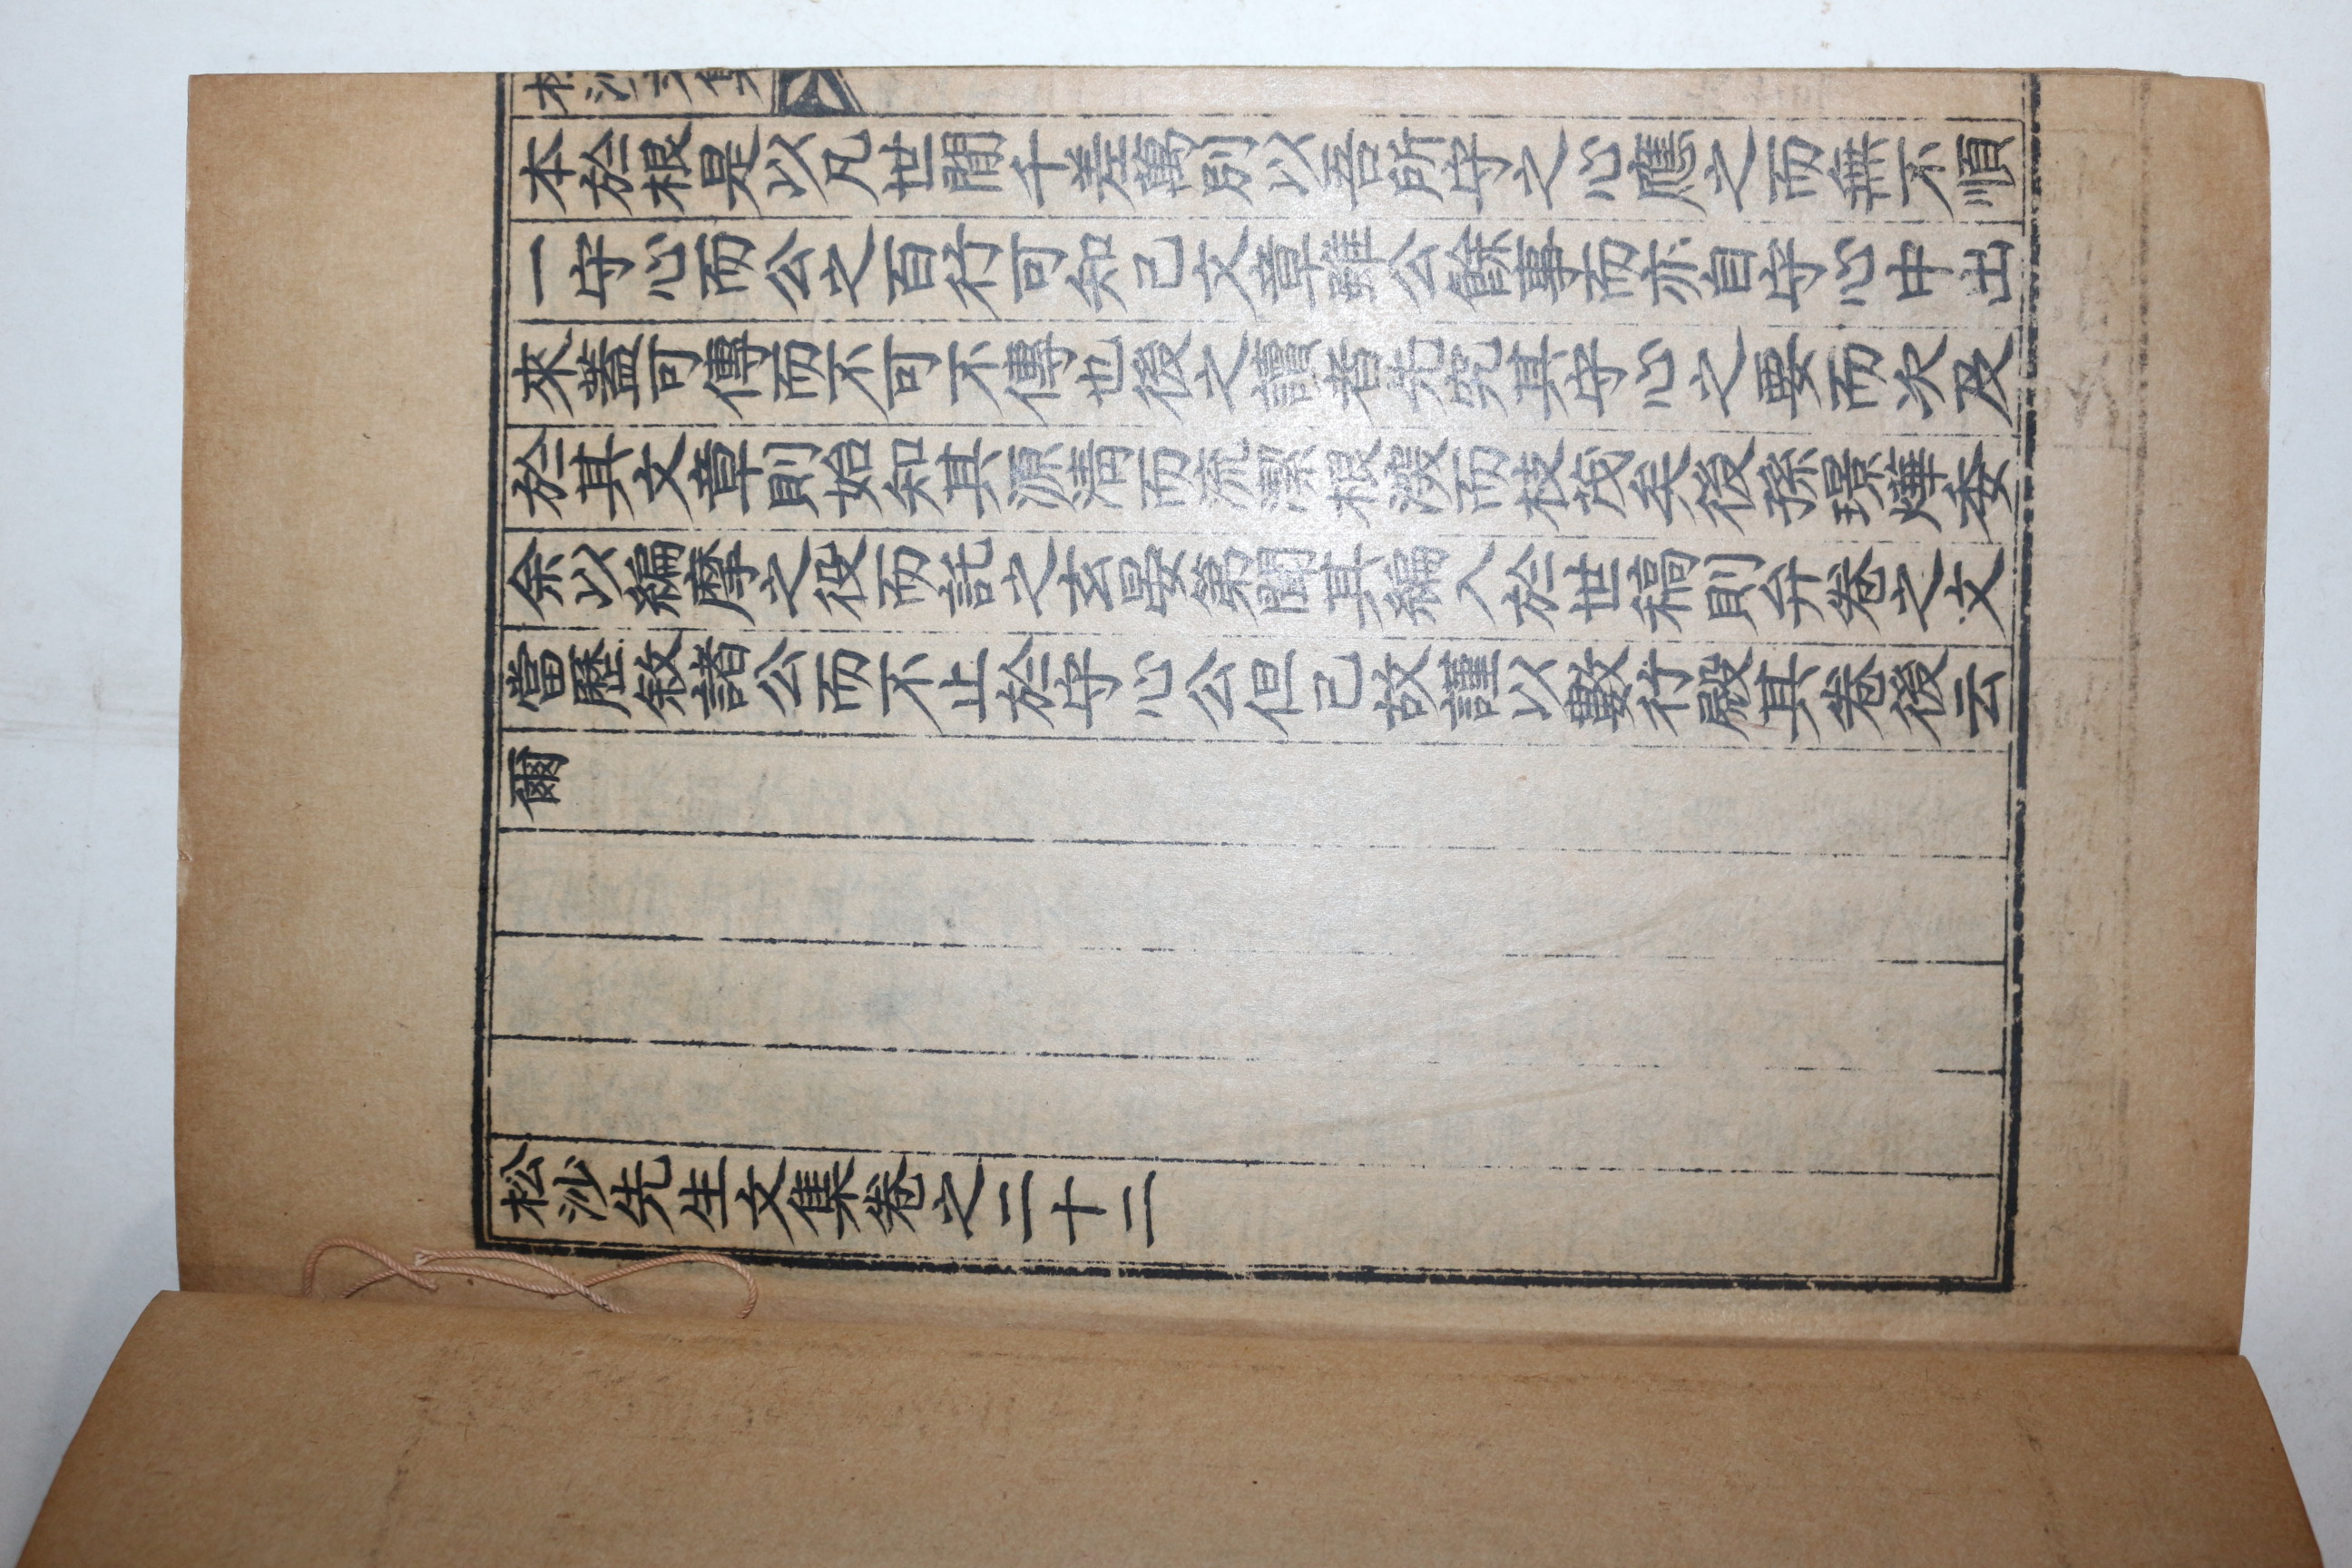 本於根是以凡世間千差萬別以吾所守之心應之而無不順
一守心而公之百行可知已文章雖公餘事而亦自守心中出
來蓋可傳而不可不傳也後之讀者先究其守心之要而次及
於其文章則始知其源清而流潔根潑而枝茂矣後孫璟燁委
余以編摩之役而託之玄晏第閱其編入於世稿則弁卷之文
當歷敘諸公而不止於守心公但已故謹以數行殿其卷後云
爾
松沙先生文集卷之二十二